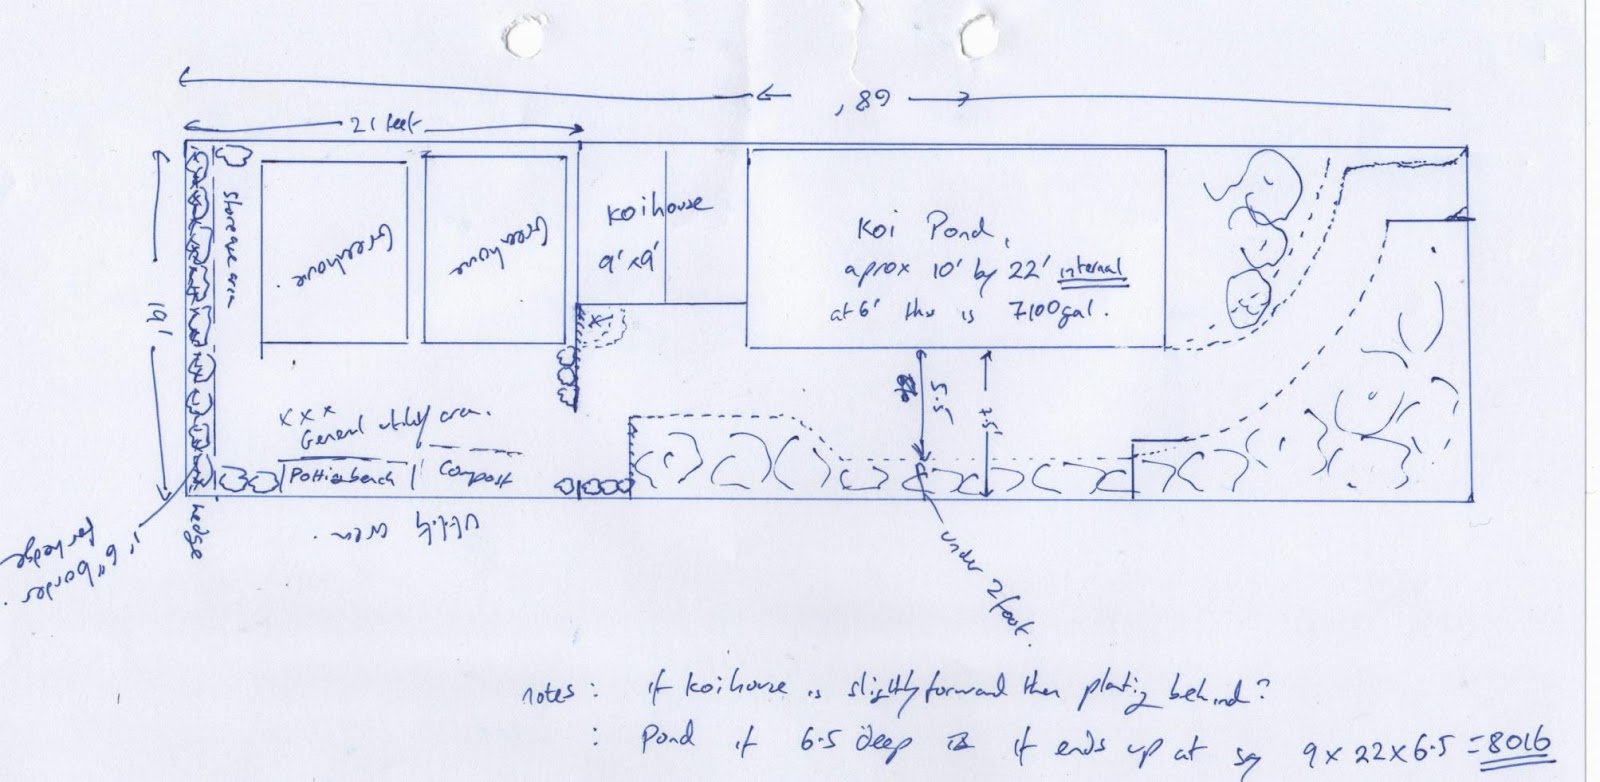 68'
21 feet
19'
Storeage area
Greenhouse
Greenhouse
Koihouse
9'x9'
Koi Pond,
aprox 10' by 22' internal
at 6' this is 7100gal.
5.5'
7.5'
x x x
General utility area.
Pottingbench
Compost
Utility area.
hedge
1' 6" border
for hedge
under 2 foot.
notes: if koihouse is slightly forward then planting behind?
: Pond if 6.5 deep if ends up at say 9x22x6.5=8016